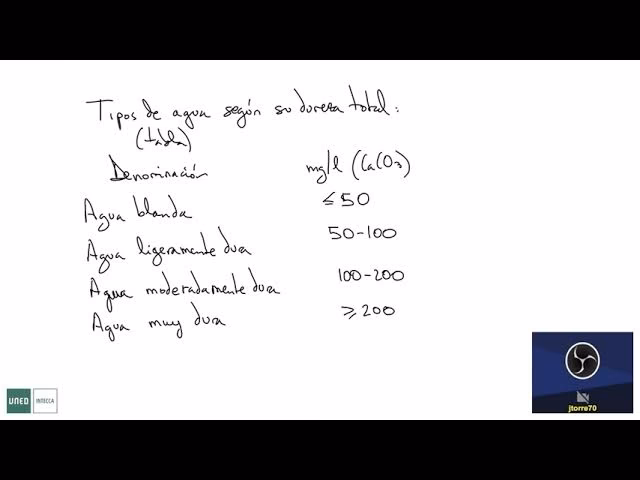 Tipos de agua según su dureza total:
(tabla)
Denominación mg/l (CaCO3)
Agua blanda ≤50
Agua ligeramente dura 50-100
Agua moderadamente dura 100-200
Agua muy dura ≥200
UNED INTECCA
jtorre70